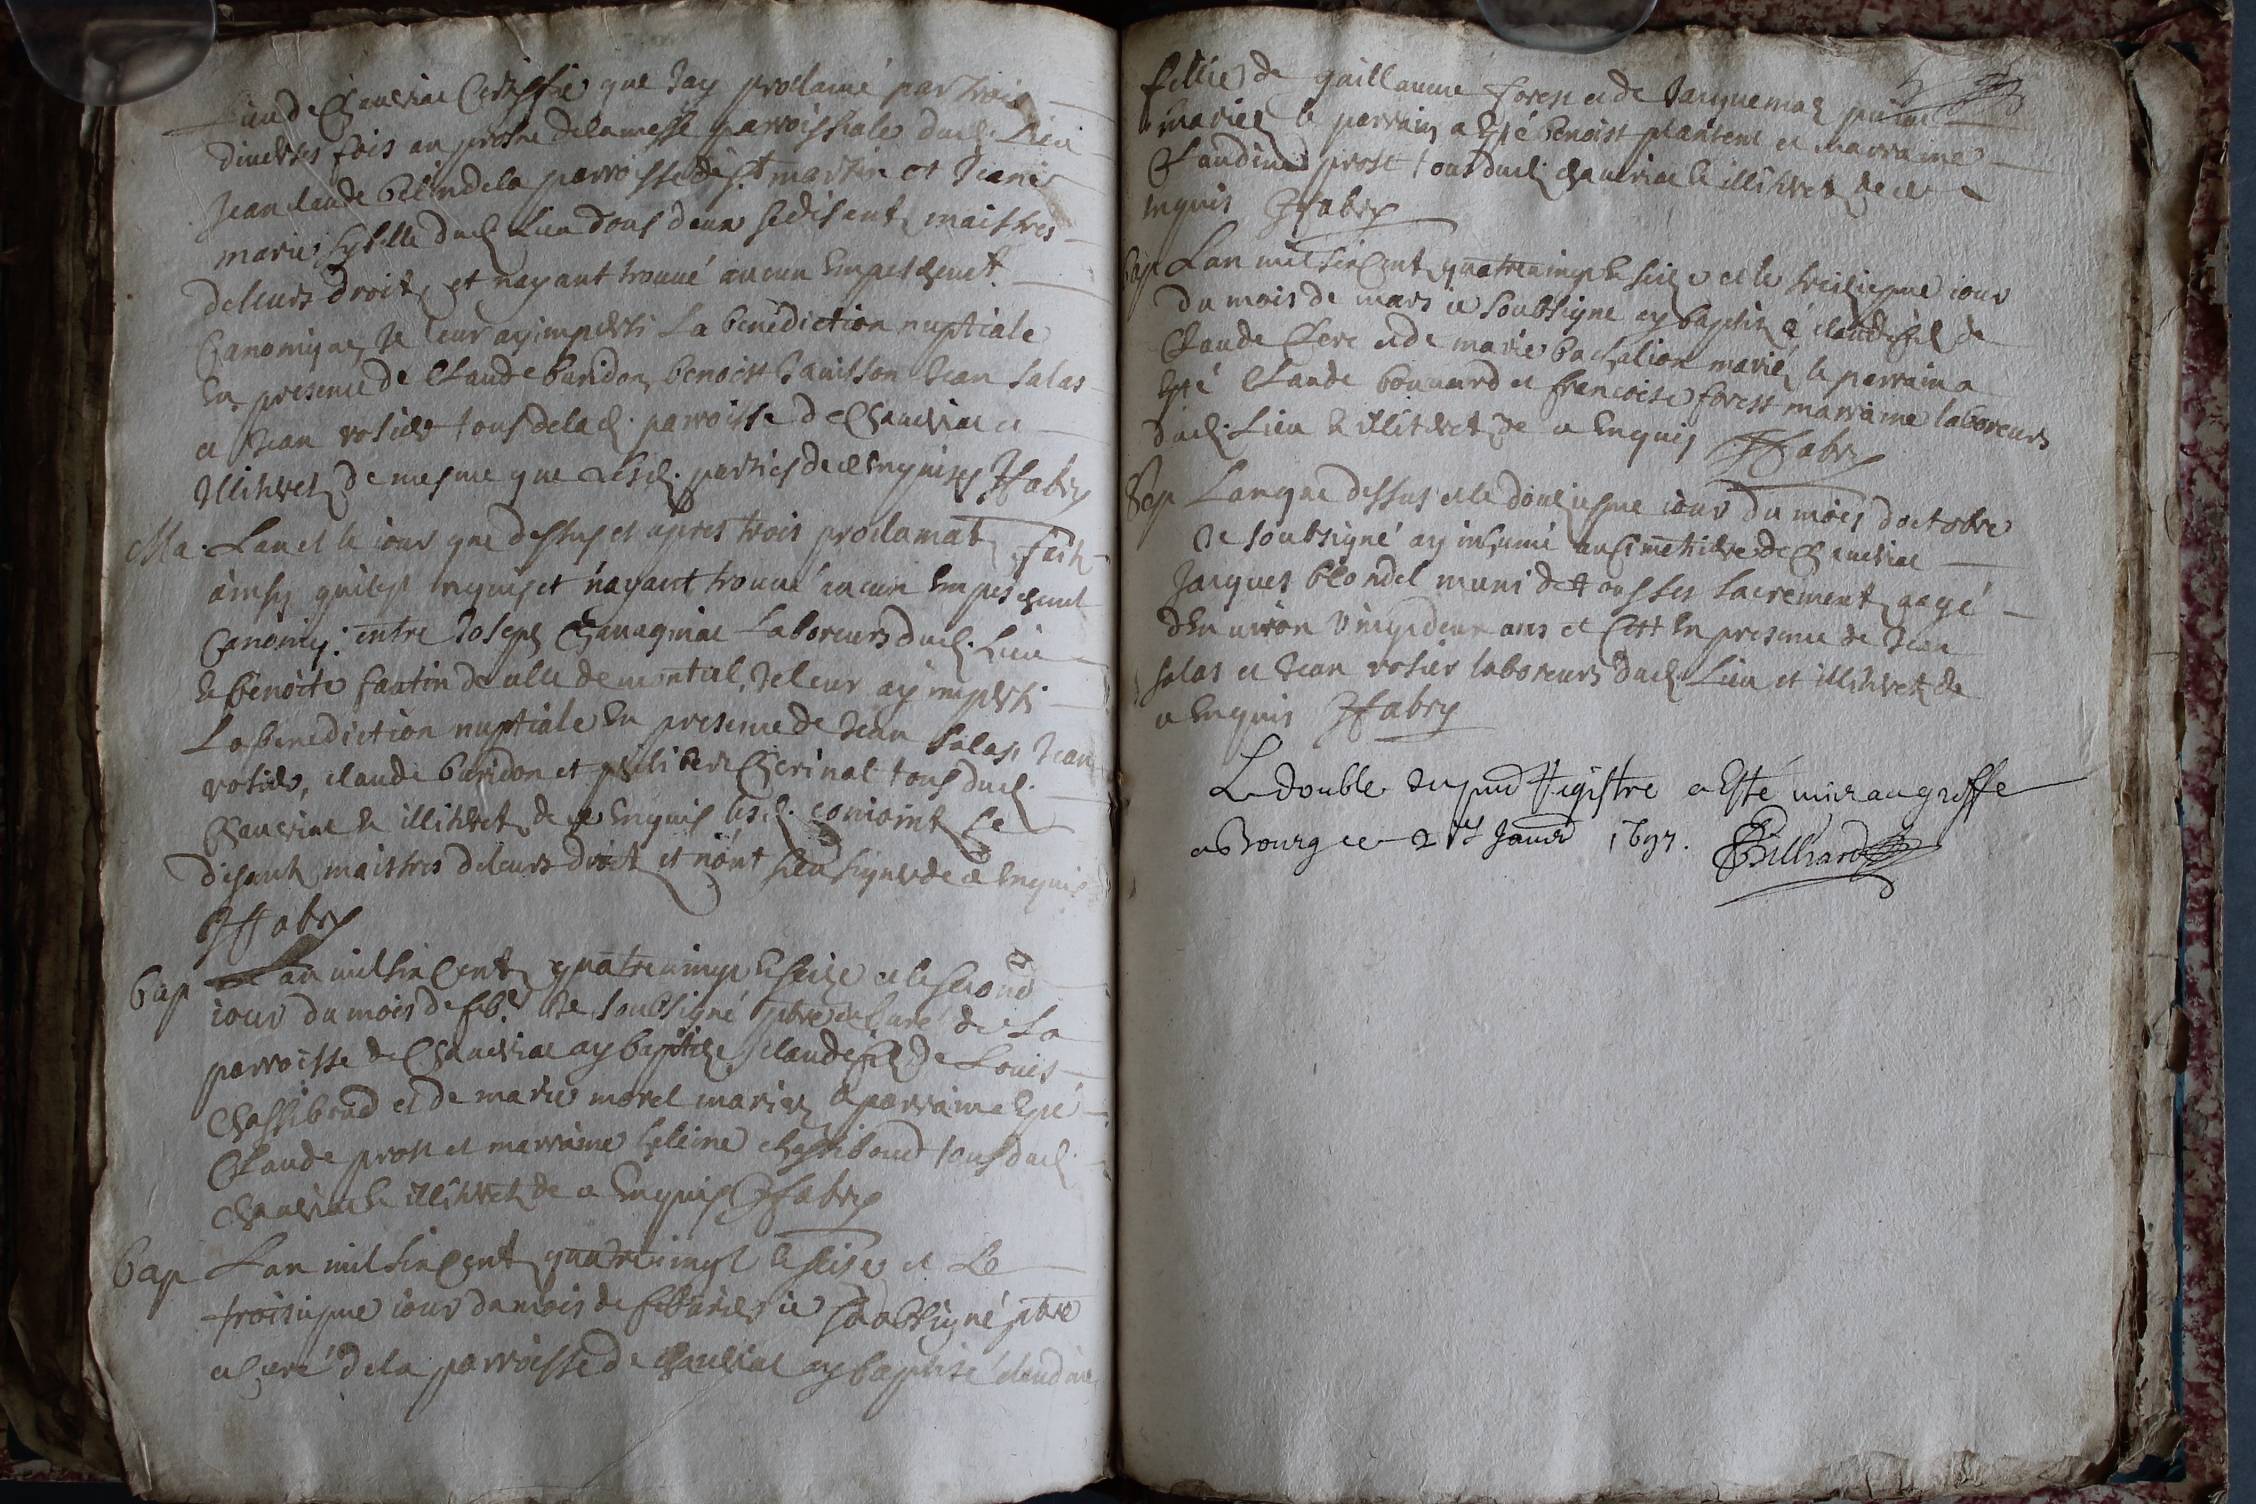 Lieu de Chaveiriac Certiffie que Jay proclamé par trois
diverses fois au prosne de la messe parroissiale dud. Lieu
Jean claude belin de la parroisse de St martin et Jeanne
marie Sybille dud Lieu tous deux se disant maistres
de leurs droit et nayant trouué aucun Empeschemt.
Canonique Je leur ay imperti La benédiction nuptiale
En presence de Claude buridon benoist Janisson Jean Salas
et Jean rosier tous de lad. parroisse de Chaveiriac et
Illitiret de mesme que Lesd. parties de ce enquises JFabry
Ma. Lan et le iour que dessus et apres trois proclamat faits
ainsy quil est requis et nayant trouué aucun Empeschement
Canoniq. entre Joseph Chanagniac Laboreurs dud. Lieu
et benoite fantin de celle de montcel Je leur ay imperti
La benediction nuptiale En presence de Jean Salas, Jean
rosier, claude buridon et philibert Cherinal tous dud.
Chaveiriac et illitiret de ce Enquis lesd. conioint se
disant maistres de leurs droit et nont sceu signer de ce Enquis
JFabry
bap Lan mil six Cent quatre vingt et seize et le second
iour du mois de feb.r Je Soubsigné pbre et Curé de La
parroisse de Chaveiriac ay baptize claude fils de Louis
Chassiboud et de marie morel mariez le parrain a Esté
Claude prost et marraine heleine chassiboud tous dud.
Chaveiriac et illitiret de ce Enquis JFabry
bap Lan mil six Cent quatre vingt et seise et Le
troisiesme iour du mois de febvrier ie Soubsigné pbre
et Curé de la parroisse de Chaveiriac ay baptisé claudine
fillie de guillaume forest et de Jacquemaz
mariez le parrain a esté benoist plantent et marraine
Claudine prost tous dud. Chaveiriac et illitiret de ce
enquis JFabry
bap Lan mil six Cent quatre vingt et seize et le treiziesme iour
du mois de mars ie soubsigne ay baptizé claude fils de
Claude Clerc et de marie bachalion marié le parrain a
Esté Claude bouuard et francoise forest marraine laboreurs
dud. Lieu et illitiret de ce Enquis JFabry
Sep Lan que dessus et le douziesme iour du mois doctobre
Je soubsigné ay inhumé au Cimethiere de Chaveiriac
Jacques blondel muni de tous ses sacrement aagé
dEnuiron vingt deux ans et Cest En presence de Jean
salas et Jean rosier laboreurs dud Lieu et illitiret de
ce Enquis JFabry
Le double du pnt Registre a Esté mis au greffe
a Bourg ce 21e Janvr 1697. Billiard